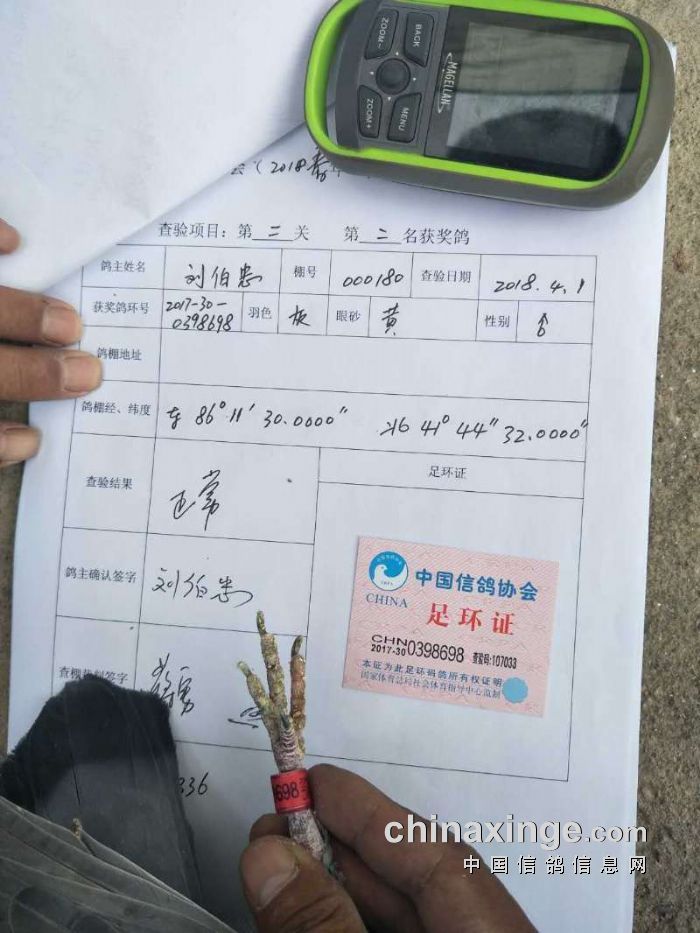 BACK
ZOOM−
MAGELLAN
MENU
ZOOM+
会（2018春
查验项目：第 二 关 第 三 名获奖鸽
鸽主姓名 刘伯忠 棚号 000180 查验日期 2018.4.1
获奖鸽环号 2017-30-0398698 羽色 灰 眼砂 黄 性别 ♂
鸽棚地址
鸽棚经、纬度 东 86° 11' 30.0000" 北 41° 44" 32.0000"
查验结果 正常 足环证
鸽主确认签字 刘伯忠
中国信鸽协会
CHINA
足环证
CHN
2017-30 0398698 查验码:107033
本证为此足环码鸽所有权证明
国家体育总局社会体育指导中心监制
签字
336
698
chinaxinge.com
中国信鸽信息网